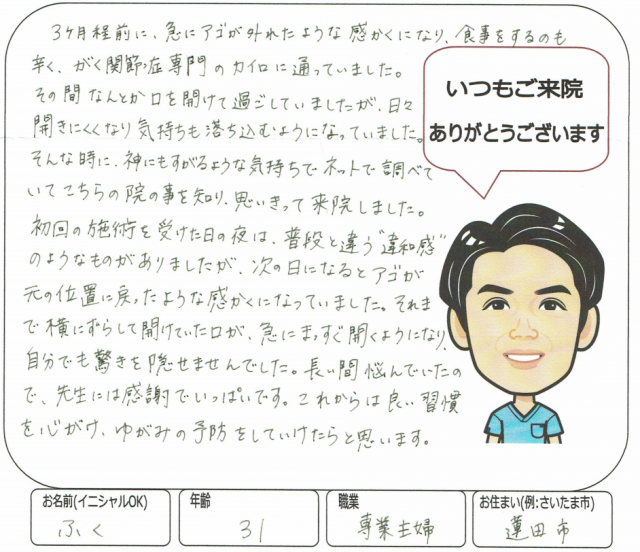 3ヶ月程前に、急にアゴが外れたような感かくになり、食事をするのも
辛く、がく関節症専門のカイロに通っていました。
その間なんとか口を開けて過ごしていましたが、日々
開きにくくなり気持ちも落ち込むようになっていました。
そんな時に、神にもすがるような気持ちでネットで調べて
いてこちらの院の事を知り、思いきって来院しました。
初回の施術を受けた日の夜は、普段と違う"違和感"
のようなものがありましたが、次の日になるとアゴが
元の位置に戻ったような感かくになっていました。それま
で横にずらして開けていた口が、急にまっすぐ開くようになり、
自分でも驚きを隠せませんでした。長い間悩んでいたの
で、先生には感謝でいっぱいです。これからは良い習慣
を心がけ、ゆがみの予防をしていけたらと思います。
いつもご来院
ありがとうございます
お名前(イニシャルOK)
ふく
年齢
31
職業
専業主婦
お住まい(例:さいたま市)
蓮田市